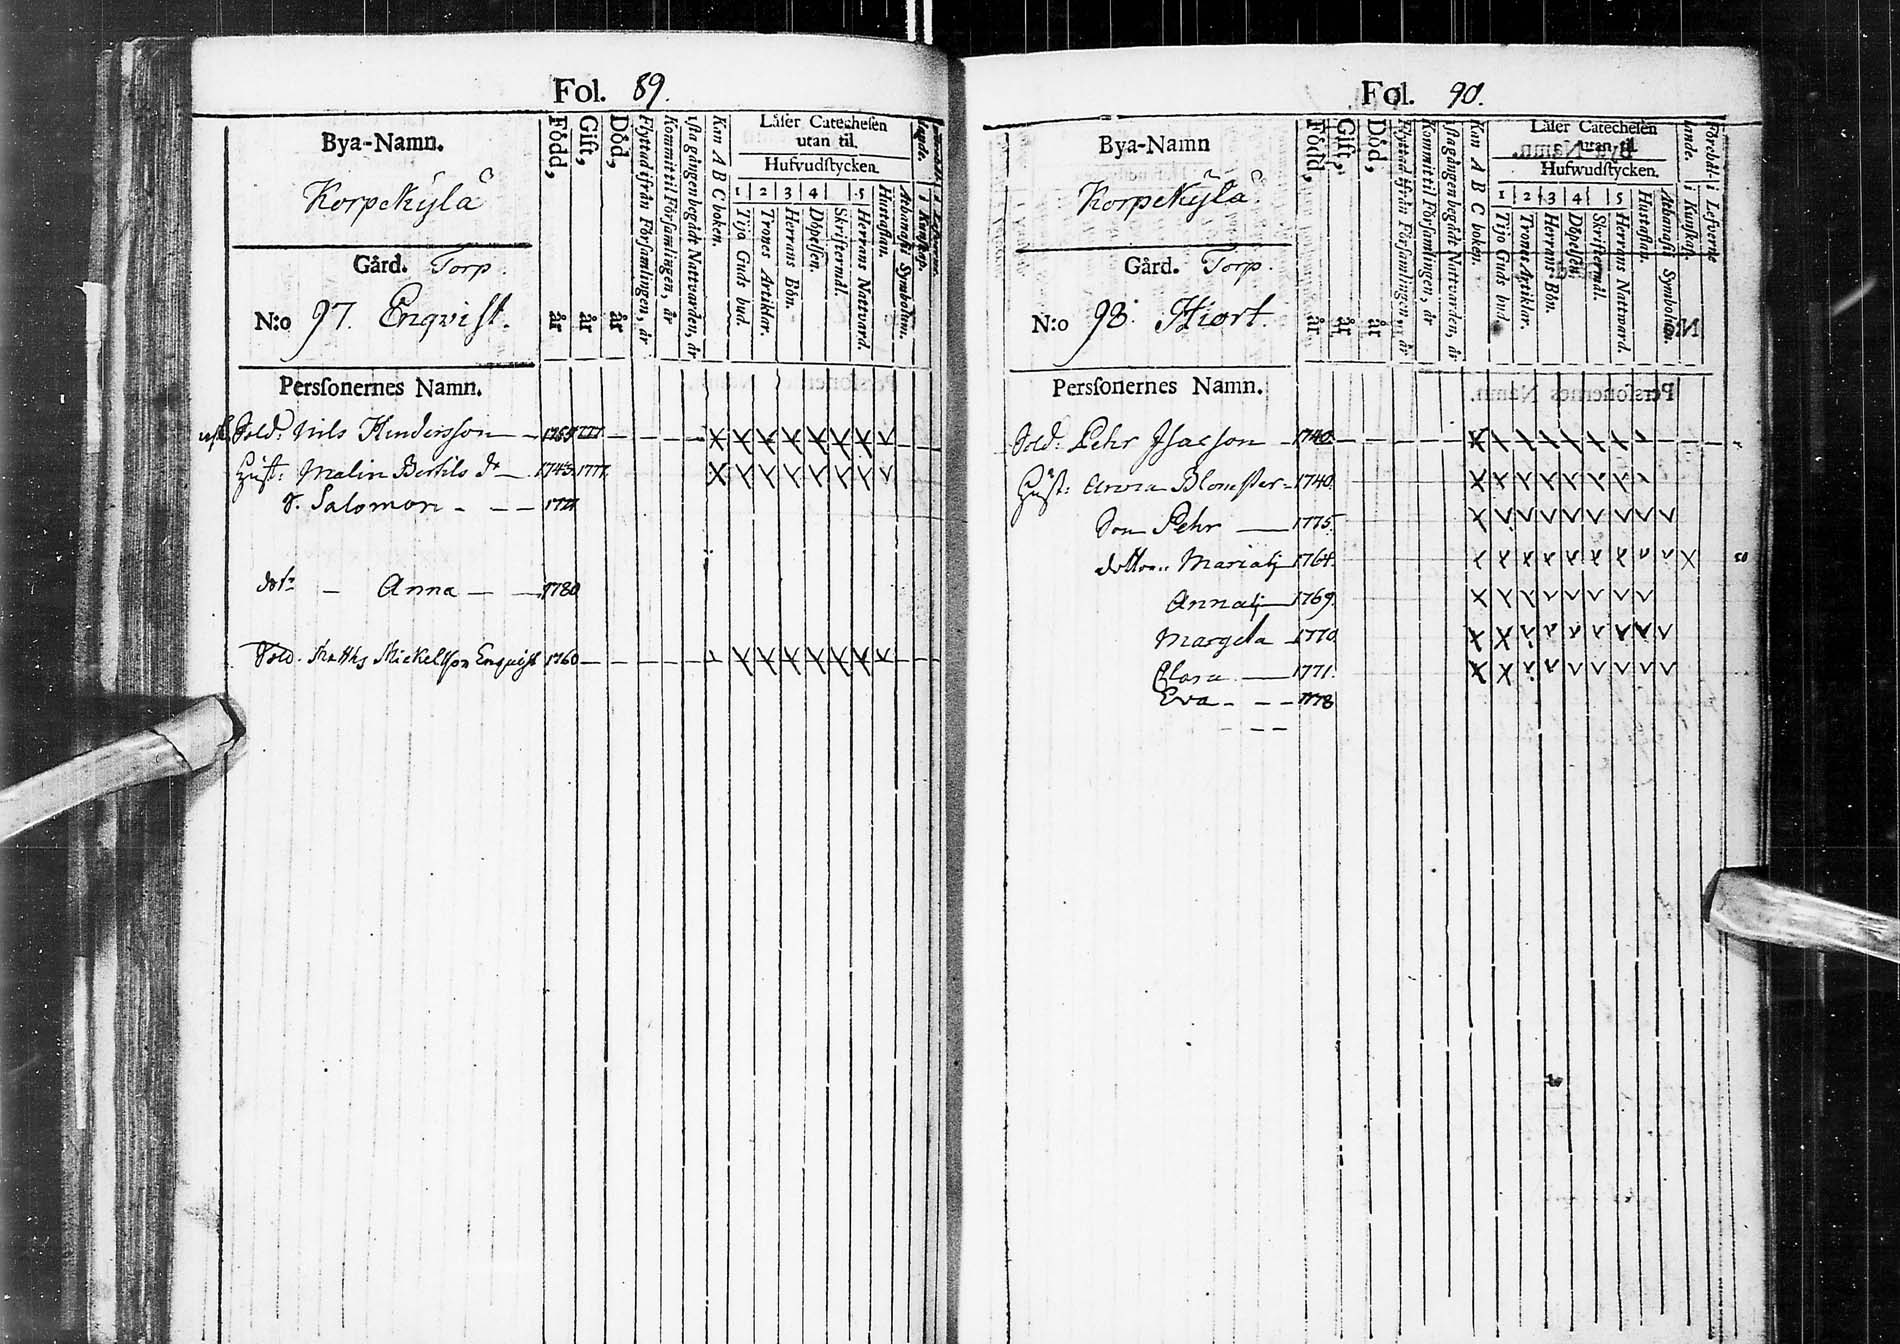 Fol. 89.
Bya-Namn.
Korpekylä
Gård. Torp.
N:o 97. Enqvist.
Född, år
Gift, år
Död, år
Flyttad ifrån Församlingen, år
Kommit til Församlingen, år
ista gången begådt Nattvarden, år
Kan A B C boken.
Läser Catechesen
utan til.
Hufvudstycken.
1 2 3 4 5
Tijo Guds bud.
Trones Artiklar.
Herrans Bön.
Döpelsen.
Skriftermål.
Herrans Nattvard.
Hustaflan.
Athanasii Symbolum.
Persſonernes Namn.
Sold. Nils Hindersson 1777
Hust: Malin Bertils dr 1743. 1777.
S. Salomon
dotr Anna 1780
Sold. Matths Mickelsson Enqvist 1760
Fol. 90.
Bya-Namn
Korpekylä
Gård. Torp.
N:o 98. Hiort.
Född, år
Gift, år
Död, år
Flyttad ifrån Församlingen, år
Kommit til Församlingen, år
ista gången begådt Nattvarden, år
Kan A B C boken.
Läser Catechesen
utan til
Hufwudstycken.
1 2 3 4 5
Tijo Guds bud.
Trones Artiklar.
Herrans Bön.
Döpelsen.
Skriftermål.
Herrans Nattvard.
Hustaflan.
Athanasii Symbolum.
Förehållande.
i Kunskap.
i Lefverne
Persſonernes Namn.
Sold. Pehr Isacson 1740
Hust: Anna Blomster 1740.
Son Pehr 1775.
Maria 1764.
Anna 1769.
Margeta 1770
Clara 1771.
Eva 1778